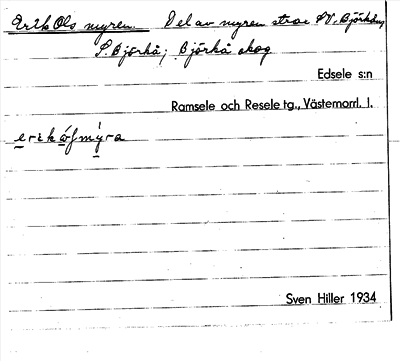 Erik Ols myren. Del av myren strax SV. Björkån,
S. Björkå; Björkå skog
Edsele s:n
Ramsele och Resele tg., Västernorrl. l.
erikólsmýra
Sven Hiller 1934